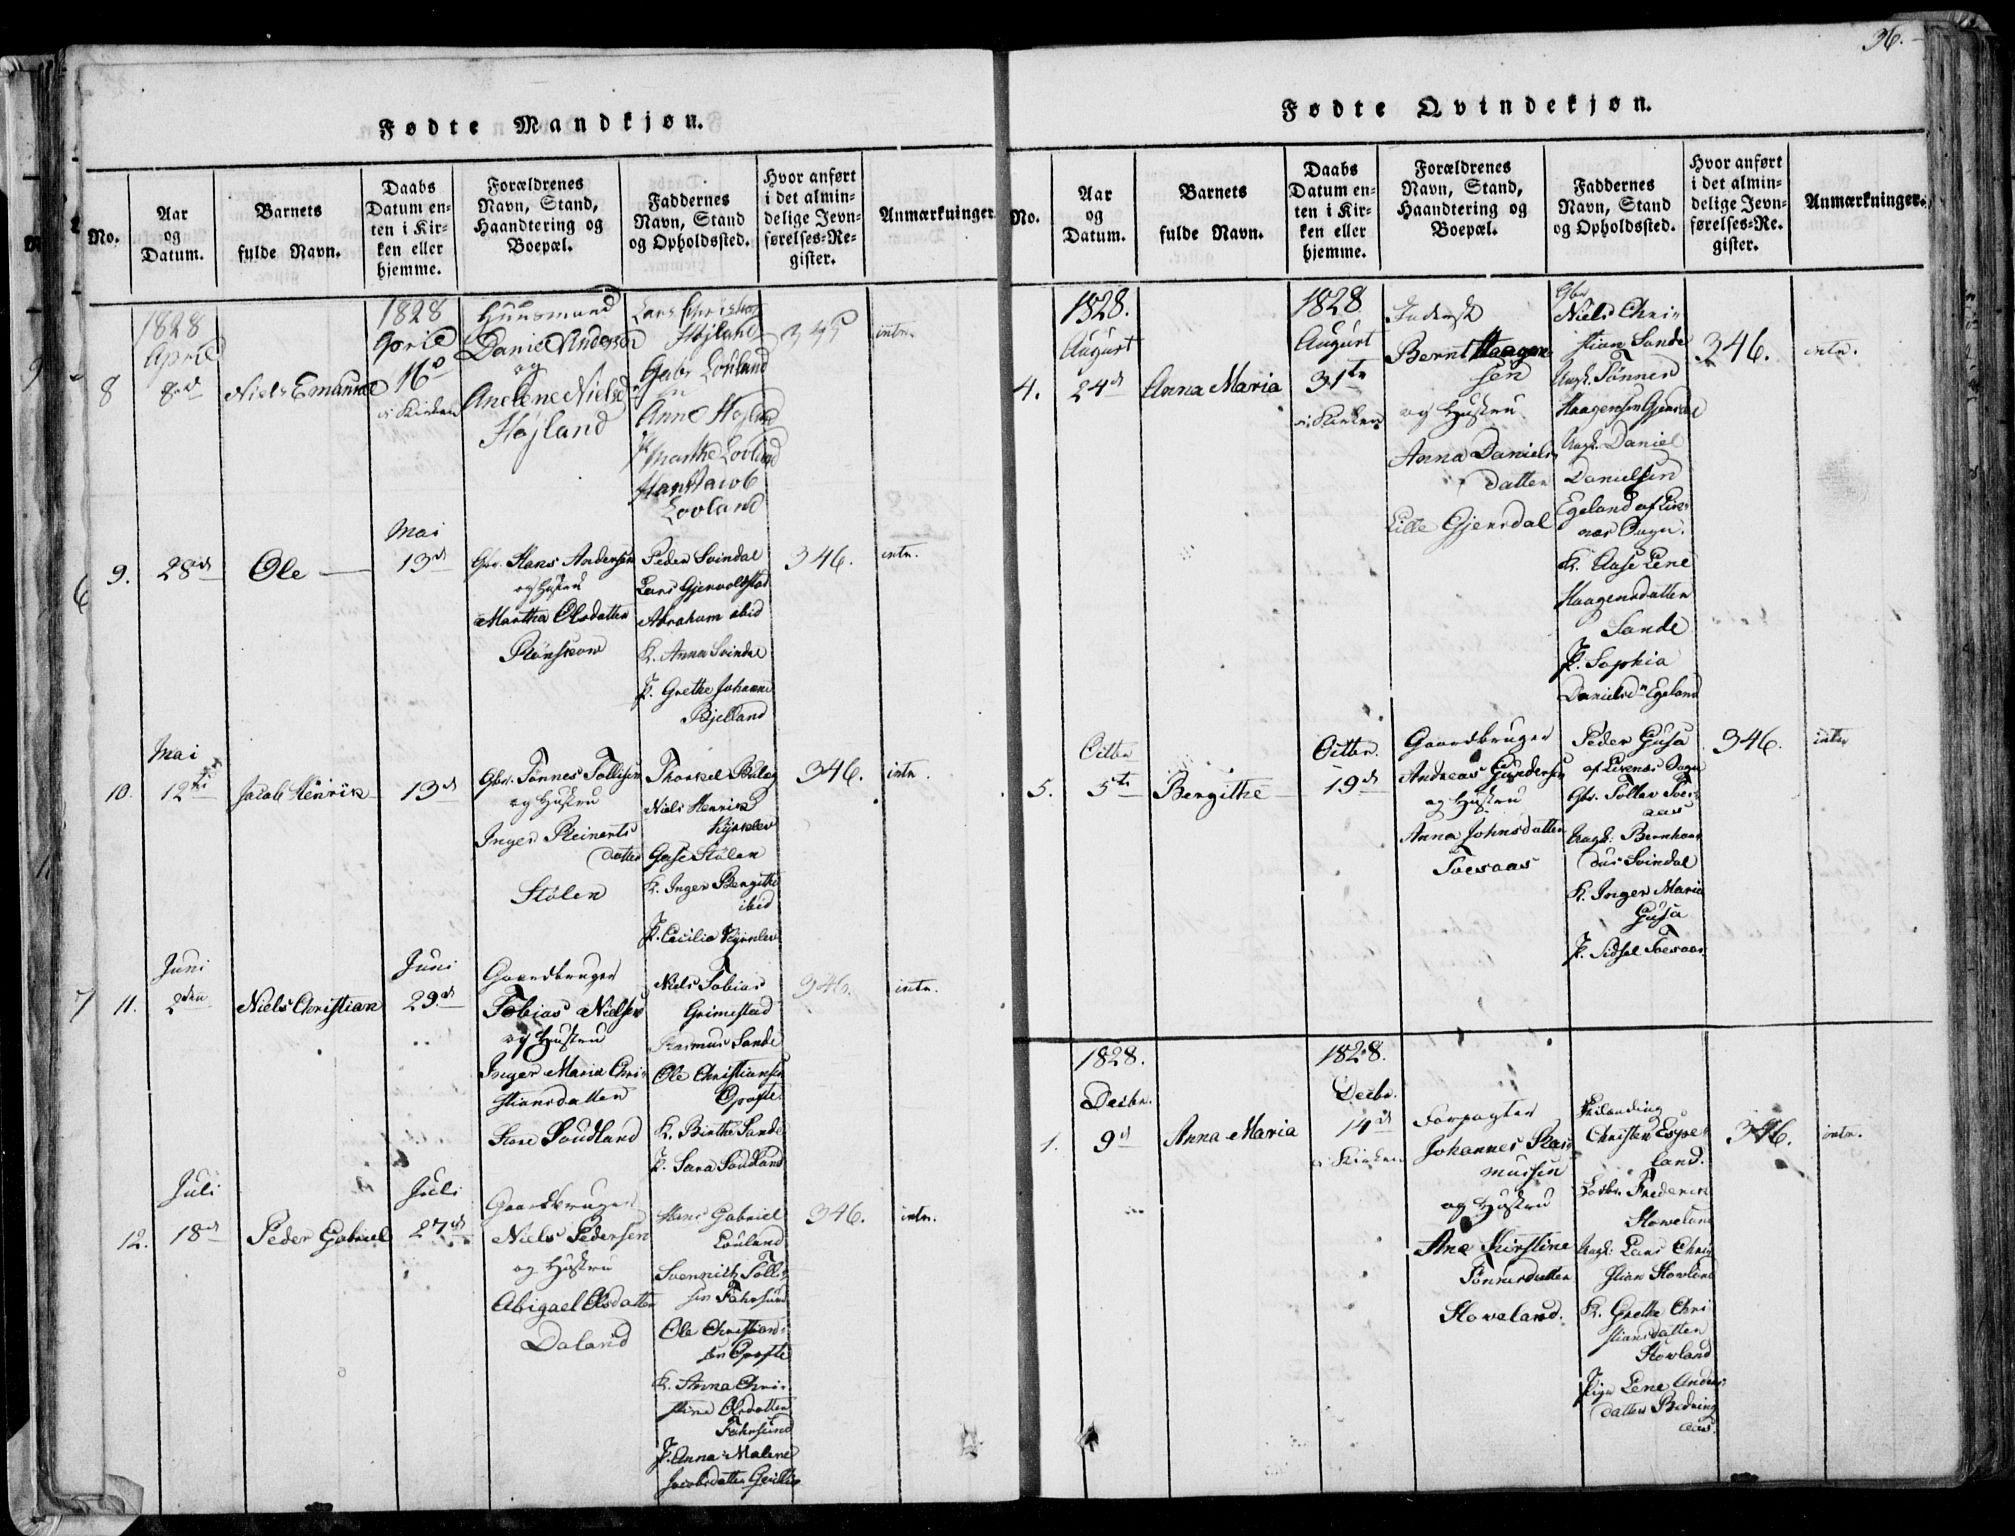 36.
Fødte Mandkjøn.
No.
Aar
og
Datum.
Barnets
fulde Navn.
Daabs
Datum en-
ten i Kir-
ken eller
hjemme.
Forældrenes
Navn, Stand,
Haandtering og
Boepæl.
Faddernes
Navn, Stand
og Opholdssted.
Hvor anført
i det almin-
delige Jevn-
førelses-Re-
gister.
Anmærkninger.
1828
April
8
8de
Niels Emanuel
1828
April
16de
i Kirken
Huusmand
Daniel Anders
og
Anelene Niels
Højland
Højland
Gabr Louland
Anne Højland
Marthe Lovland
Hans Jacob
Lovland
345
intr.
9.
28de
Ole
Mai
13de
Gbr. Hans Andersen
og Hustru
Martha Olsdatter
Rønskow
Peder Svindal
Lars Gjervoldstad
Abraham ibid
K. Anna Svindal
P. Grethe Johanne
Bjelland
346.
intr.
Mai
10.
12te
Jacob Henrik
13de
Gbr. Tønnes Tollisen
og Hustru
Inger Reinerts
datter
Stølen
Thorkel
Niels Henrik
Aase Stølen
K. Inger Bergithe
ibid
P. Cecilia
346.
intr.
Juni
11.
2den
Niels Christian
Juni
29de
Gaardbruger
Tobias Nielsen
og Hustru
Inger Maria Chri-
stiansdatter
Store Soudland
Niels Tobias
Grimestad
Rasmus Sande
Ole Christiansen
Opofte
K. Birthe Sande
P. Sara Soudland
346.
intr.
Juli
12.
18de
Peder Gabriel
Juli
27de
Gaardbruger
Niels Pedersen
og Hustru
Abigael Olsdatter
Daland
Hans Gabriel
Louland
Svennith Tolli-
sen Fahrsund
Ole Christian-
sen Opofte
K. Anna Chri-
stine Olsdatter
Fahrsund
P. Anna Malene
Jacobsdatter
346.
intr.
Fødte Qvindekjøn.
No.
Aar
og
Datum.
Barnets
fulde Navn.
Daabs
Datum en-
ten i Kir-
ken eller
hjemme.
Forældrenes
Navn, Stand,
Haandtering og
Boepæl.
Faddernes
Navn, Stand
og Opholdssted.
Hvor anført
i det almin-
delige Jevn-
førelses-Re-
gister.
Anmærkninger.
1828.
August
4.
24de
Anna Maria
1828
August
31te
i Kirken
Inderst
Bernt Haagen-
sen
og Hustru
Anna Daniels
datter
Lille Gjersdal
Gbr
Niels Chri-
stian Sande
Ungk. Tønnes
Haagensen Gjersdal
Ungk. Daniel
Danielsen
Egeland af
Sogn.
K. Aase Lene
Haagensdatter
Sande
P. Sophia
Danielsdr Egeland
346.
intr.
Octbr
5.
5te
Bergithe
Octbr.
19de
Gaardbruger
Andreas Gundersen
og Hustru
Anna Johnsdatter
Toesaas
Peder Gusa
af Sogn
Gbr. Tollev Toes-
aas
Ungk: Bernhar-
dus Svindal
K. Inger Maria
Gusa
P. Sidsel Toesaas
346.
intr
1828.
Decbr.
1.
9de
Anna Maria
1828.
Decbr.
14de
i Kirken
Forpagter
Johannes Ras-
mussen
og Hustru
Ane Kirstine
Tønnesdatter
Howeland.
Christen Espe-
land.
Frederik
Howeland
Ungk: Lars Chri-
stian Howland
K. Grethe Chri-
stiansdatter
Howland
Pige Lene Anders-
datter Bedring-
aas.
346.
intr.